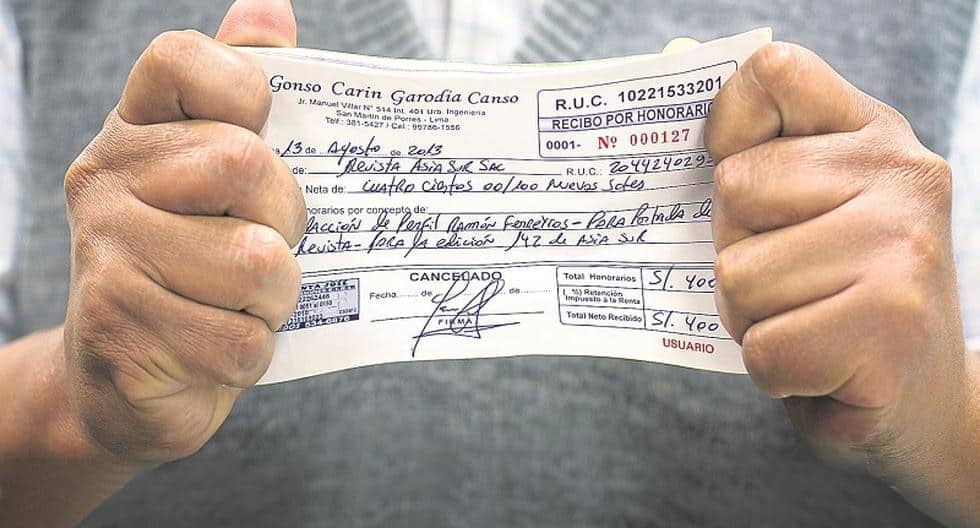 Gonso Carin Garodia Canso
Jr. Manuel Villar N° 514 Int. 401 Urb. Ingenieria
San Martin de Porres - Lima
Telf.: 381-5427 / Cel.: 99786-1556
R.U.C. 10221533201
RECIBO POR HONORARIO
0001- Nº 000127
13 de Agosto de 2013
de: Revista Asia Sur Sac R.U.C.: 204424029
Nota de: Cuatro cientos 00/100 Nuevos Soles
norarios por concepto de:
dacción de Perfil Ramón Ferreyros - Para Portada de
Revista - Para la edición 142 de Asia Sur
CANCELADO
Fecha....... de ....... de.......
FIRMA
Total Honorarios S/. 400
( %) Retención
Impuesto a la Renta
Total Neto Recibido S/. 400
USUARIO